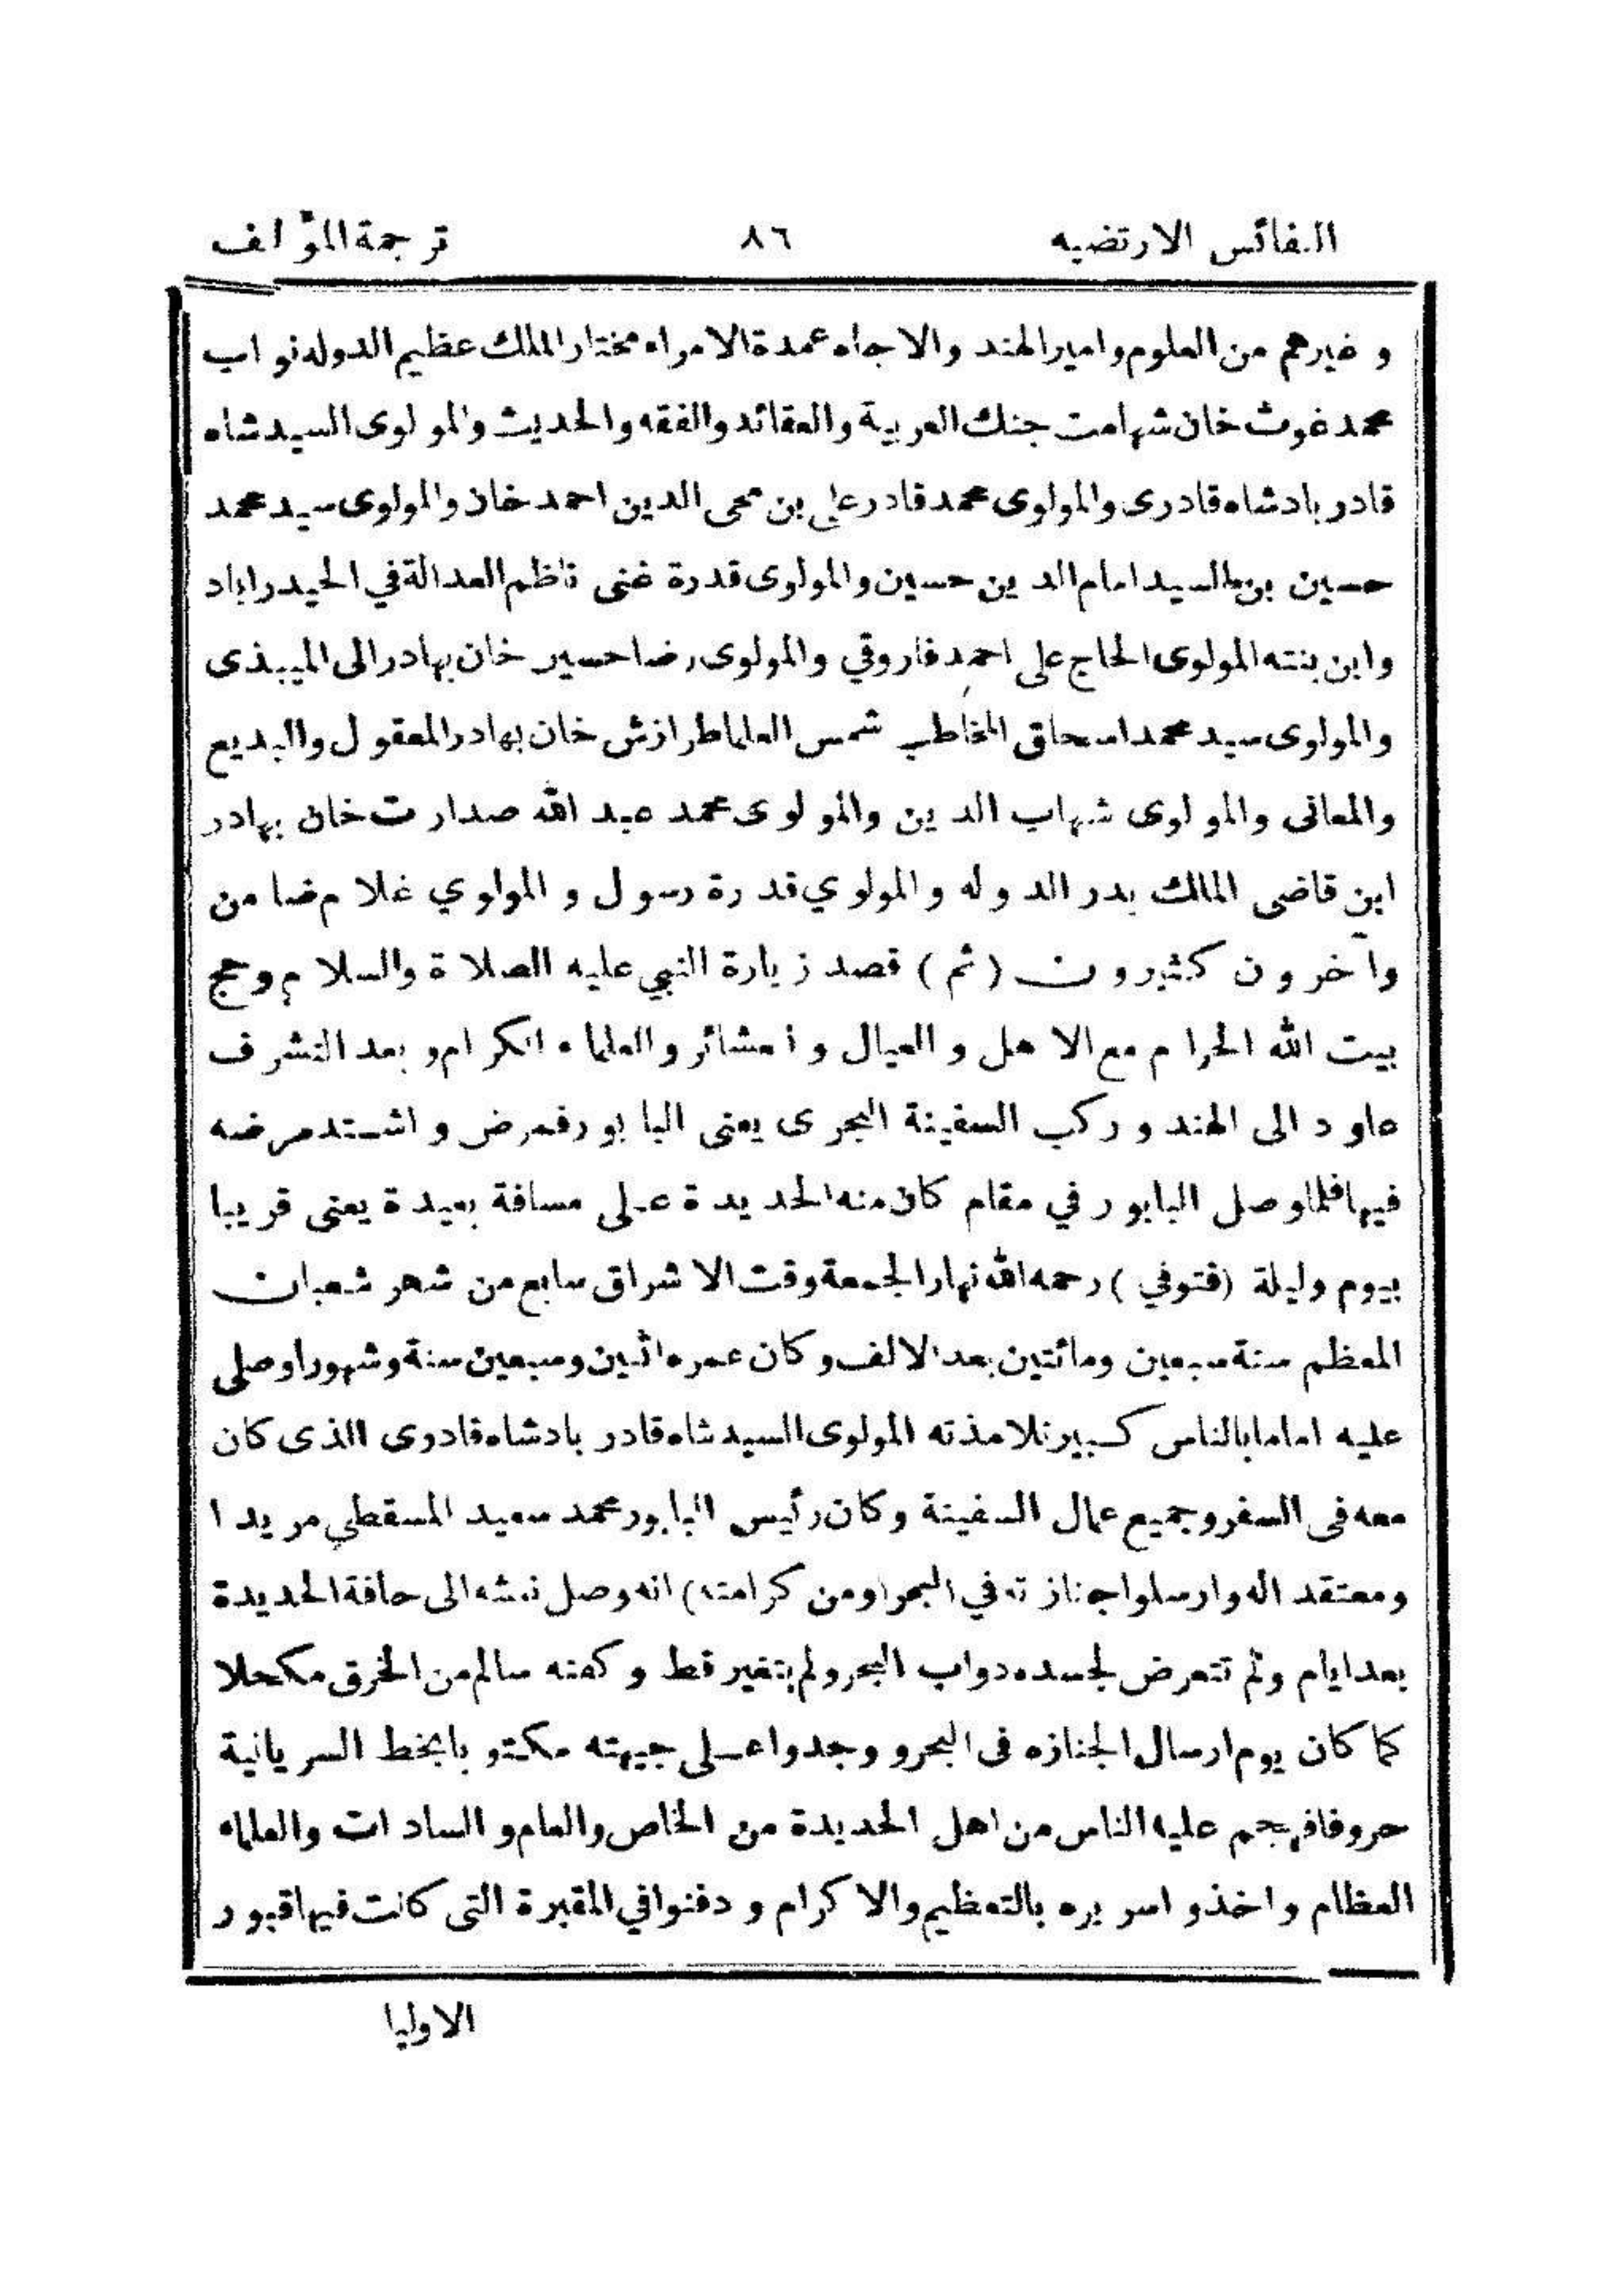 النفائس الارتضيه ٨٦ ترجمة المؤلف
و غيرهم من العلوم وامير الهند والاجاه عمدة الامراء مختار الملك عظيم الدوله نواب
محمد غوث خان شهامت جنك العربية والعقائد والفقه والحديث والمولوى السيد شاه
قادر بادشاه قادرى والمولوى محمد قادر على بن محى الدين احمد خان والمولوى سيد محمد
حسين بن السيد امام الدين حسين والمولوى قدرة غنى ناظم العدالة في الحيدراباد
وابن بنته المولوى الحاج على احمد فاروقي والمولوى رضا حسير خان بهادر الى الميبذى
والمولوى سيد محمد اسحاق المخاطب شمس العلما طرازش خان بهادر المعقول والبديع
والمعانى والمولوى شهاب الدين والمولوى محمد عبد الله صدارت خان بهادر
ابن قاضى الملك بدر الدوله والمولوي قدرة رسول و المولوي غلام ضامن
وآخرون كثيرون (ثم) قصد زيارة النبي عليه الصلاة والسلام وحج
بيت الله الحرام مع الاهل و العيال و العشائر والعلماء الكرام و بعد التشرف
عاود الى الهند و ركب السفينة البحرى يعنى البابور فمرض و اشتد مرضه
فيها فلما وصل البابور في مقام كان منه الحديدة على مسافة بعيدة يعنى قريبا
بيوم وليلة (فتوفي) رحمه الله نهار الجمعة وقت الاشراق سابع من شهر شعبان
المعظم سنة سبعين ومائتين بعد الالف و كان عمره اثنين وسبعين سنة وشهورا وصلى
عليه اماما بالناس كبير تلامذته المولوى السيد شاه قادر بادشاه قادرى الذى كان
معه فى السفر وجميع عمال السفينة وكان رئيس البابور محمد سعيد المسقطي مريدا
ومعتقدا له وارسلوا جنازته في البحر (ومن كرامته) انه وصل نعشه الى حافة الحديدة
بعد ايام ولم تتعرض لجسده دواب البحر ولم يتغير قط و كفنه سالم من الخرق مكحلا
كما كان يوم ارسال الجنازه فى البحر و وجدوا على جبهته مكتوبا بخط السريانية
حروفا فهجم عليه الناس من اهل الحديدة من الخاص والعام و السادات والعلماء
العظام واخذوا سريره بالتعظيم والاكرام و دفنوا في المقبرة التى كانت فيها قبور
الاوليا